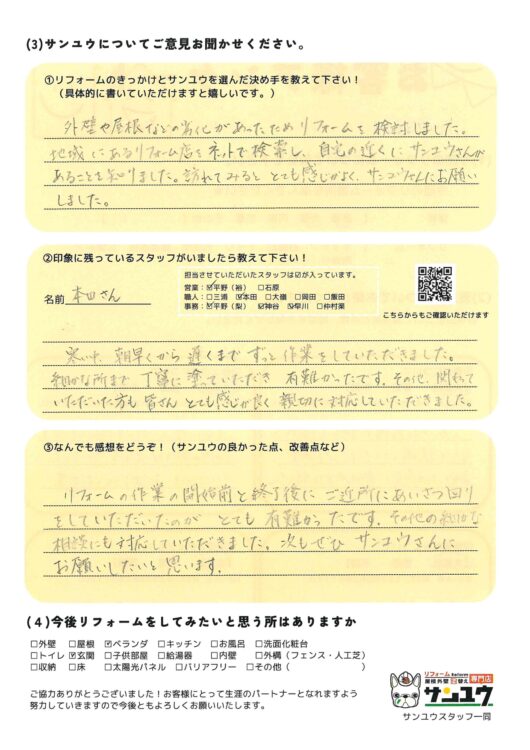 (3)サンユウについてご意見お聞かせください。
①リフォームのきっかけとサンユウを選んだ決め手を教えて下さい！
（具体的に書いていただけますと嬉しいです。）
外壁や屋根などの劣化があったためリフォームを検討しました。
地域にあるリフォーム店をネットで検索し、自宅の近くにサンユウさんが
あることを知りました。訪れてみると とても感じがよく、サンユウさんにお願い
しました。
②印象に残っているスタッフがいましたら教えて下さい！
担当させていただいたスタッフは☑が入っています。
営業：☑平野（裕） □石原
職人：□三浦 ☑本田 □大嶺 □岡田 □飯田
事務：☑平野（梨） ☑神谷 ☑早川 □仲村栗
名前 本田さん
こちらからもご確認いただけます
寒い中、朝早くから 遅くまで ずっと作業をしていただきました。
細かな所まで 丁寧に塗っていただき 有難かったです。その他、関わって
いただいた方も 皆さん とても感じが良く 親切に対応していただきました。
③なんでも感想をどうぞ！（サンユウの良かった点、改善点など）
リフォームの作業の開始前と終了後に ご近所にあいさつ回り
をしていただいたのが とても 有難かったです。その他の細かな
相談にも対応していただきました。次もぜひ サンユウさんに
お願いしたいと思います。
(４)今後リフォームをしてみたいと思う所はありますか
□外壁 □屋根 ☑ベランダ □キッチン □お風呂 □洗面化粧台
□トイレ ☑玄関 □子供部屋 □給湯器 □内壁 □外構（フェンス・人工芝）
□収納 □床 □太陽光パネル □バリアフリー □その他（ ）
ご協力ありがとうございました！お客様にとって生涯のパートナーとなれますよう
努力していきますので今後ともよろしくお願いいたします。
リフォーム Reform 専門店
屋根外壁 塗替え
サンユウ
サンユウスタッフ一同